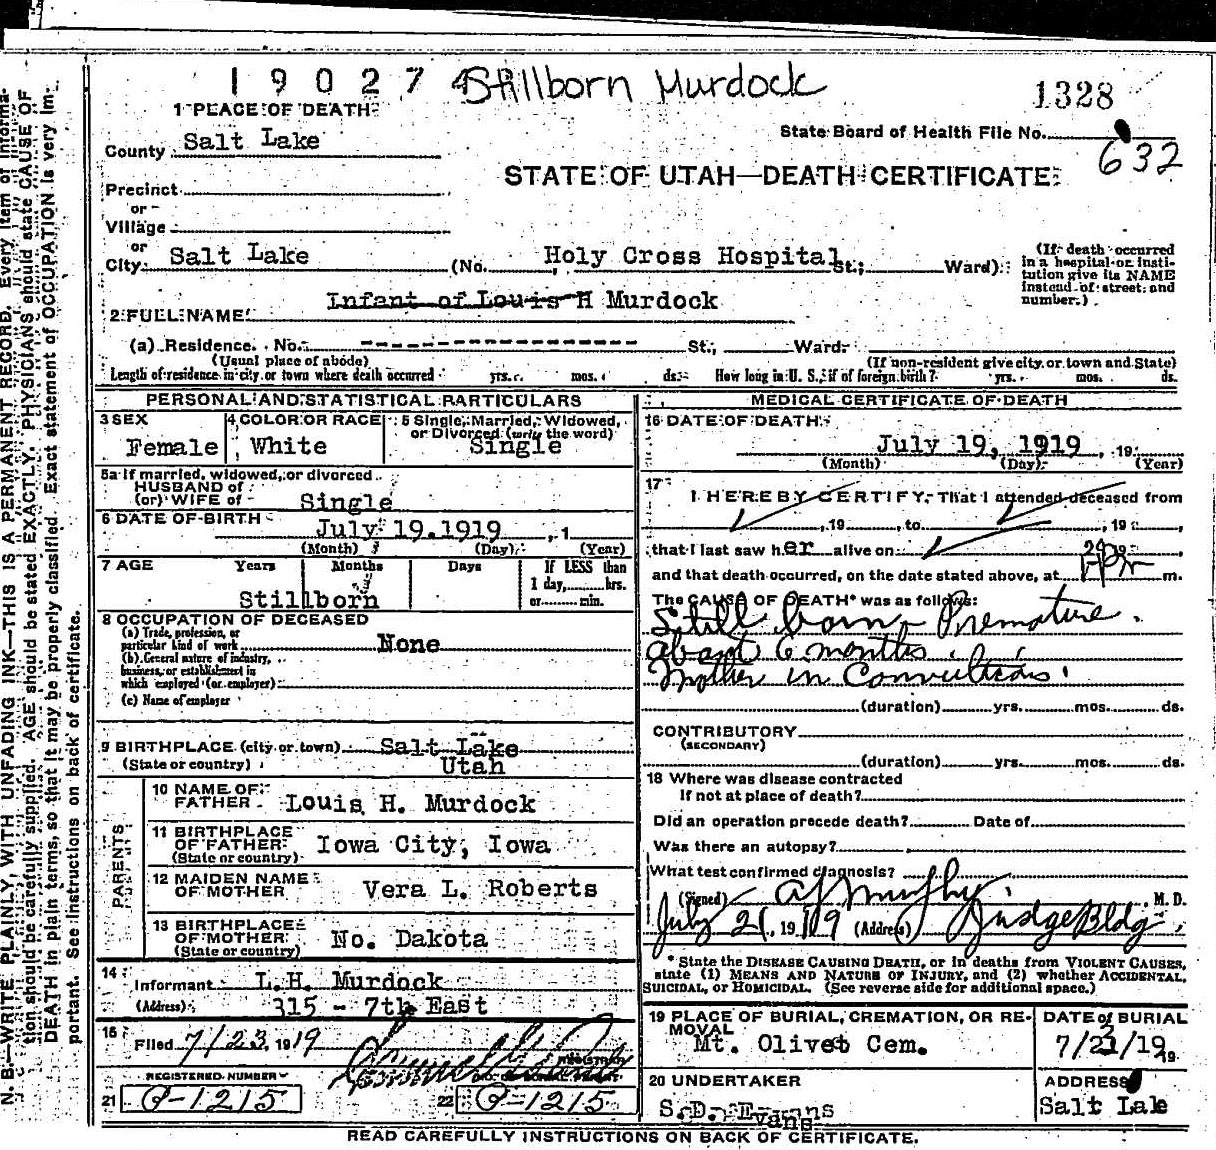 190274 Stillborn Murdock
1328
1 PLACE OF DEATH
State Board of Health File No.
632
County Salt Lake
STATE OF UTAH—DEATH CERTIFICATE
Precinct
or
Village
or
City Salt Lake (No. Holy Cross Hospital St.; Ward)
(If death occurred in a hospital or institution give its NAME instead of street and number.)
2 FULL NAME Infant of Louis H Murdock
(a) Residence. No. St., Ward.
(Usual place of abode) (If non-resident give city or town and State)
Length of residence in city or town where death occurred yrs. mos. ds. How long in U. S., if of foreign birth? yrs. mos. ds.
PERSONAL AND STATISTICAL PARTICULARS
3 SEX Female
4 COLOR OR RACE White
5 Single, Married, Widowed, or Divorced (write the word) Single
5a If married, widowed, or divorced
HUSBAND of
(or) WIFE of Single
6 DATE OF BIRTH July 19.1919 , 1
(Month) (Day) (Year)
7 AGE Years Months Days If LESS than
1 day, hrs.
or min.
Stillborn
8 OCCUPATION OF DECEASED
(a) Trade, profession, or
particular kind of work None
(b) General nature of industry,
business, or establishment in
which employed (or employer)
(c) Name of employer
9 BIRTHPLACE (city or town) Salt Lake
(State or country) Utah
PARENTS
10 NAME OF FATHER Louis H. Murdock
11 BIRTHPLACE OF FATHER (State or country) Iowa City, Iowa
12 MAIDEN NAME OF MOTHER Vera L. Roberts
13 BIRTHPLACE OF MOTHER (State or country) No. Dakota
14
Informant L.H. Murdock
(Address) 315 - 7th East
15
Filed 7/23, 1919
REGISTRAR
REGISTERED NUMBER
21 P-1215 22 P-1215
MEDICAL CERTIFICATE OF DEATH
16 DATE OF DEATH
July 19, 1919 , 19
(Month) (Day) (Year)
17
I HEREBY CERTIFY, That I attended deceased from
, 19 , to , 19 ,
that I last saw her alive on 19 ,
and that death occurred, on the date stated above, at m.
The CAUSE OF DEATH* was as follows:
Still born - Premature.
about 6 months.
Mother in Convultions.
(duration) yrs. mos. ds.
CONTRIBUTORY
(SECONDARY)
(duration) yrs. mos. ds.
18 Where was disease contracted
If not at place of death?
Did an operation precede death? Date of
Was there an autopsy?
What test confirmed diagnosis?
(Signed) A J Murphy , M. D.
July 21, 1919 (Address) Judge Bldg.
* State the DISEASE CAUSING DEATH, or in deaths from VIOLENT CAUSES,
state (1) MEANS AND NATURE OF INJURY, and (2) whether ACCIDENTAL,
SUICIDAL, OR HOMICIDAL. (See reverse side for additional space.)
19 PLACE OF BURIAL, CREMATION, OR REMOVAL
Mt. Olivet Cem.
DATE of BURIAL
7/23/19 19
20 UNDERTAKER
S. D. Evans
ADDRESS
Salt Lake
READ CAREFULLY INSTRUCTIONS ON BACK OF CERTIFICATE.
N. B.—WRITE PLAINLY, WITH UNFADING INK—THIS IS A PERMANENT RECORD. Every item of informa-
tion should be carefully supplied. AGE should be stated EXACTLY. PHYSICIANS should state CAUSE OF
DEATH in plain terms, so that it may be properly classified. Exact statement of OCCUPATION is very im-
portant. See instructions on back of certificate.